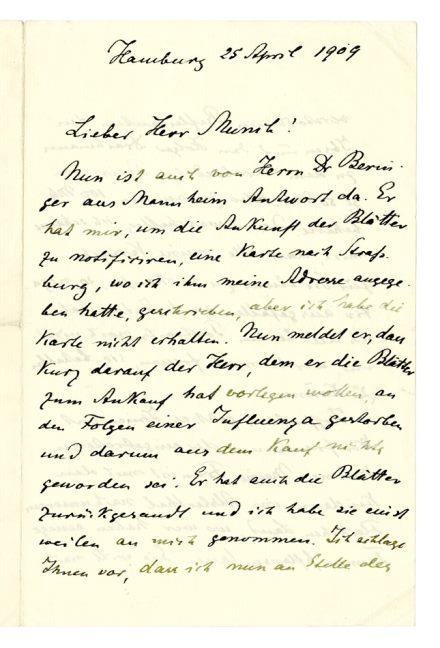 Hamburg 25 April 1909
Lieber Herr Munch!
Nun ist auch von Herrn Dr Berin-
ger aus Mannheim Antwort da. Er
hat mir, um die Ankunft der Blätter
zu notifiziren, eine Karte nach Straß-
burg, wo ich ihm meine Adresse angege-
ben hatte, geschrieben, aber ich habe die
Karte nicht erhalten. Nun meldet er, dass
kurz darauf der Herr, dem er die Blätter
zum Ankauf hat vorlegen wollen, an
den Folgen einer Influenza gestorben
und darum aus dem Kauf nichts
geworden sei. Er hat auch die Blätter
zurückgesandt und ich habe sie einst
weilen an mich genommen. Ich schlage
Ihnen vor, dass ich nun an Stelle des